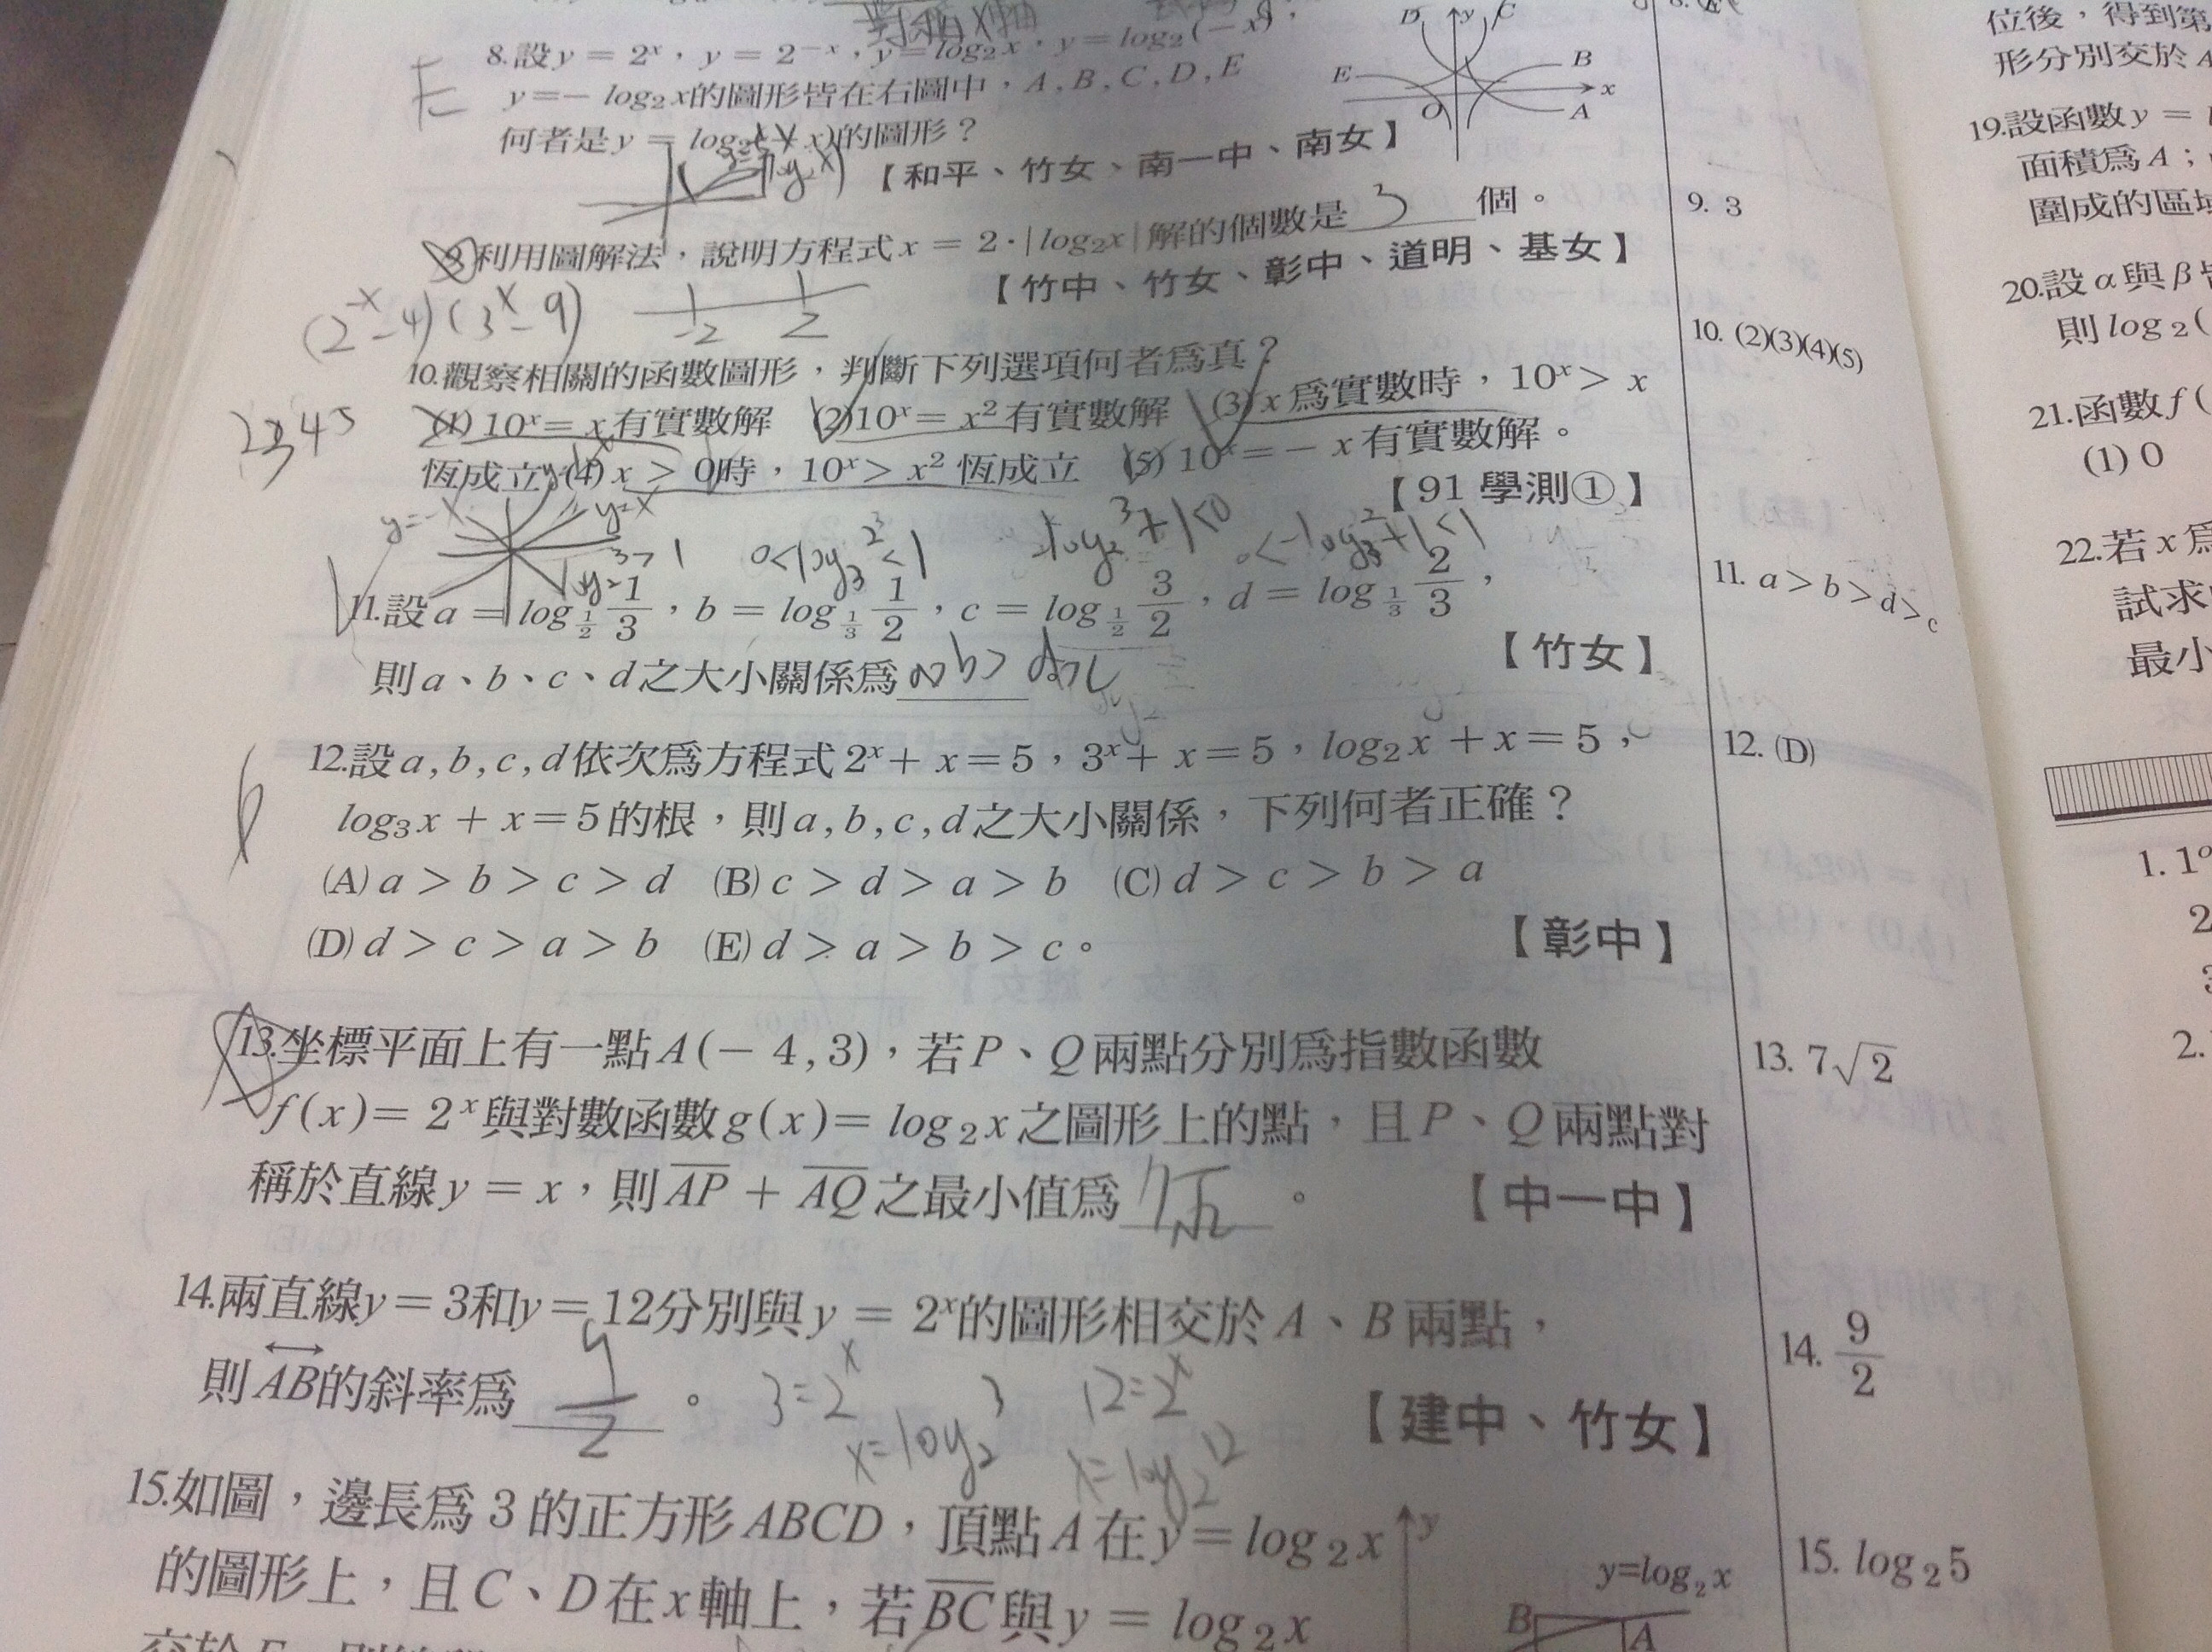 8.設y = 2ˣ，y = 2⁻ˣ，y = log₂x，y = log₂(−x)，
y = − log₂x的圖形皆在右圖中，A , B , C , D , E
何者是y = log₂(− x)的圖形？
【和平、竹女、南一中、南女】
D y C
E B
x
O A
E
9.利用圖解法，說明方程式 x = 2 · |log₂x| 解的個數是 3 個。
【竹中、竹女、彰中、道明、基女】
9. 3
(2⁻ˣ−4)(3ˣ−9)
-2 2
10.觀察相關的函數圖形，判斷下列選項何者爲真？
(1) 10ˣ = x 有實數解 (2) 10ˣ = x² 有實數解 (3) x 爲實數時，10ˣ > x
恆成立 (4) x > 0時，10ˣ > x² 恆成立 (5) 10ˣ = − x 有實數解。
【91 學測①】
10. (2)(3)(4)(5)
2345
y=-x y=x
log₂3>1 0<log₃2<1 -log₂3+1<0 0<-log₃2+1<1
11.設 a = log_{1/2} 1/3，b = log_{1/3} 1/2，c = log_{1/2} 3/2，d = log_{1/3} 2/3，
【竹女】
則 a、b、c、d 之大小關係爲 a>b>d>c
11. a > b > d > c
12.設 a , b , c , d 依次爲方程式 2ˣ + x = 5，3ˣ + x = 5，log₂x + x = 5，
log₃x + x = 5 的根，則 a , b , c , d 之大小關係，下列何者正確？
(A) a > b > c > d (B) c > d > a > b (C) d > c > b > a
(D) d > c > a > b (E) d > a > b > c。
【彰中】
12. (D)
13.坐標平面上有一點 A (− 4 , 3)，若 P、Q 兩點分別爲指數函數
f (x) = 2ˣ 與對數函數 g (x) = log₂x 之圖形上的點，且 P、Q 兩點對
稱於直線 y = x，則 AP + AQ 之最小值爲 7√2。
【中一中】
13. 7√2
14.兩直線y = 3和y = 12分別與y = 2ˣ的圖形相交於 A、B 兩點，
則 AB的斜率爲 9/2。
3=2ˣ 12=2ˣ
x=log₂3 x=log₂12
【建中、竹女】
14. 9/2
15.如圖，邊長爲 3 的正方形 ABCD，頂點 A 在 y = log₂x
的圖形上，且 C、D 在 x 軸上，若 BC 與 y = log₂x
y
y=log₂x
B A
15. log₂5
位後，得到第
形分別交於 A
19.設函數 y =
面積爲 A；
圍成的區域
20.設 α 與 β
則 log₂(
21.函數 f (
(1) 0
22.若 x 爲
試求
最小
1. 1°
2
3
2.